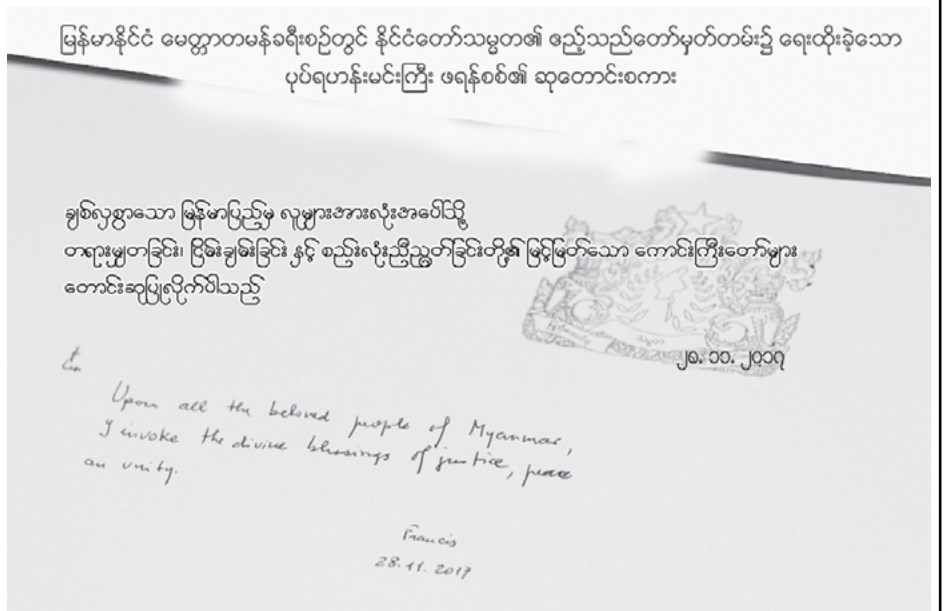 မြန်မာနိုင်ငံ မေတ္တာတမန်ခရီးစဉ်တွင် နိုင်ငံတော်သမ္မတ၏ ဧည့်သည်တော်မှတ်တမ်း၌ ရေးထိုးခဲ့သော
ပုပ်ရဟန်းမင်းကြီး ဖရန်စစ်၏ ဆုတောင်းစကား
ချစ်လှစွာသော မြန်မာပြည်မှ လူများအားလုံးအပေါ်သို့
တရားမျှတခြင်း၊ ငြိမ်းချမ်းခြင်း နှင့် စည်းလုံးညီညွတ်ခြင်းတို့၏ မြင့်မြတ်သော ကောင်းကြီးတော်များ
တောင်းဆုပြုလိုက်ပါသည်
၂၈. ၁၁. ၂၀၁၇
Upon all the beloved people of Myanmar,
I invoke the divine blessings of justice, peace
an unity.
Francis
28.11.2017